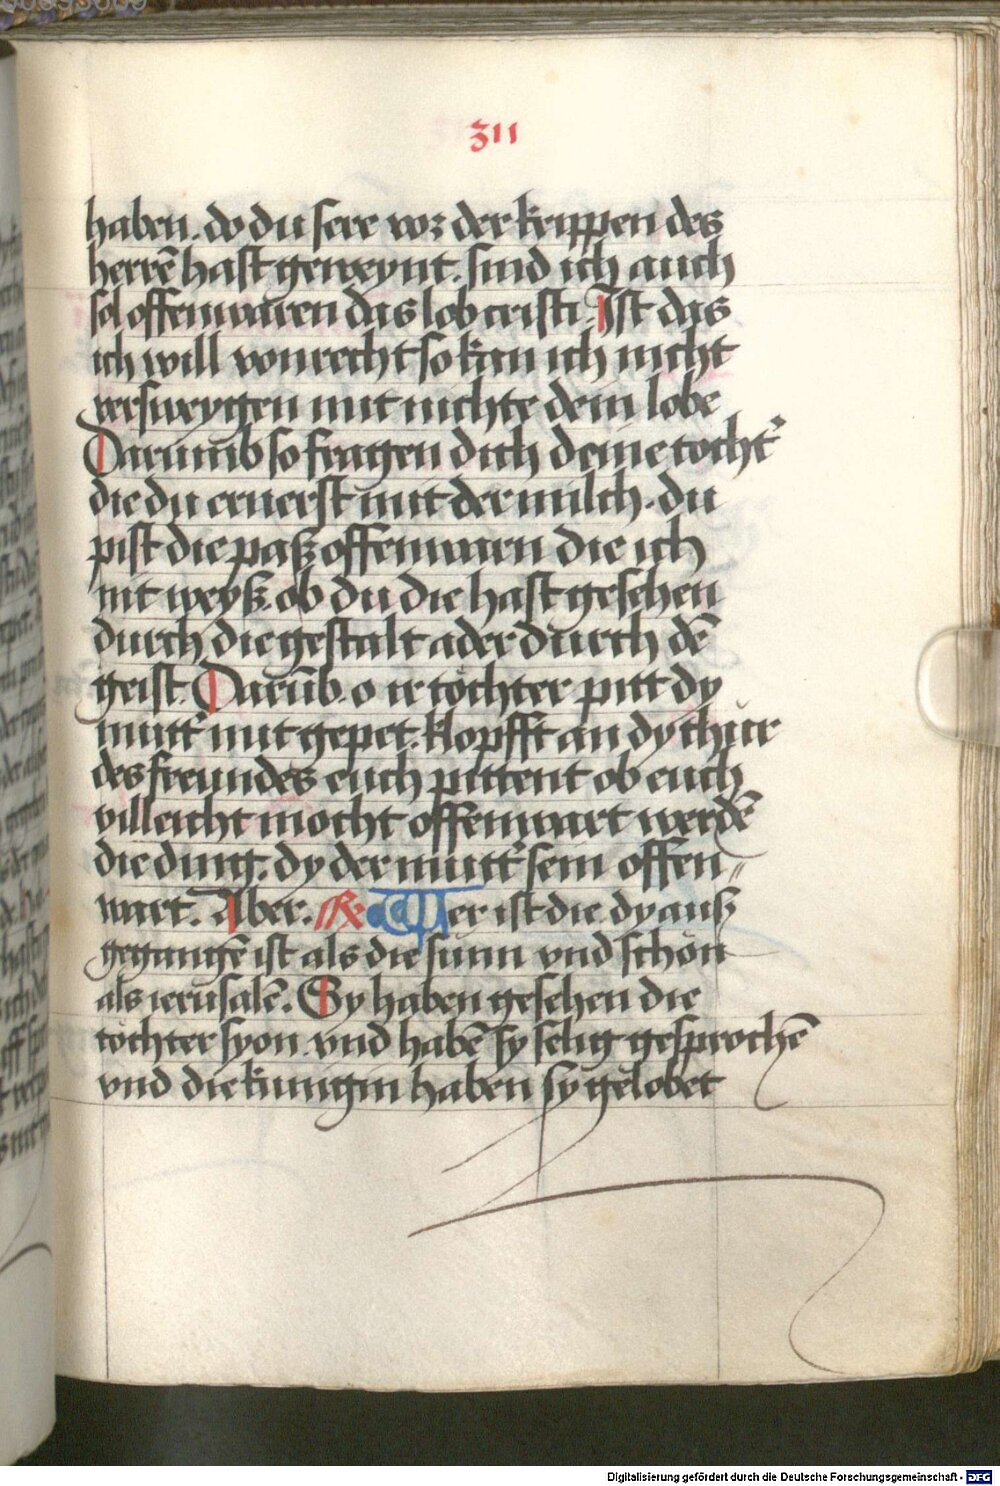 311
haben. do du sere vor der krippen des
herrē hast geweynt. sind ich auch
sol offenwaren das lob cristi. Ist das
ich will von recht so kan ich nicht
versweygen mit nichte dein lobe
Darumb so fragen dich deine tocht'
die du ernerst mit der milch. du
pist die paß offenwaren die ich
nit weyß. ob du die hast gesehen
durch die gestalt ader durch dē
geist. Darūb. o ir töchter pitt dy
mutt' mit gepet. klopfft an dy thür
des freundes euch pittent ob euch
villeicht mocht offenwart werdē
die ding. dy der mutt' sein offen//
wart. Aber. R Wer ist die. dy auß
gegangē ist als die sunn vnd schön
als ierusalē. Sy haben gesehen die
töchter syon. vnd habē sy selig gesprochē
vnd die kunigin haben sy gelobet
Digitalisierung gefördert durch die Deutsche Forschungsgemeinschaft - DFG